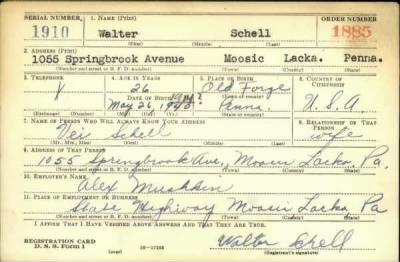 SERIAL NUMBER 1. NAME (Print) ORDER NUMBER
1910 Walter Schell 1885
(First) (Middle) (Last)
2. ADDRESS (Print)
1055 Springbrook Avenue Moosic Lacka. Penna.
(Number and street or R. F. D. number) (Town) (County) (State)
3. TELEPHONE 4. AGE IN YEARS 5. PLACE OF BIRTH 6. COUNTRY OF CITIZENSHIP
26 Old Forge
DATE OF BIRTH
May 26, Penna. U.S.A.
7. NAME OF PERSON WHO WILL ALWAYS KNOW YOUR ADDRESS 8. RELATIONSHIP OF THAT PERSON
Schell wife
9. ADDRESS OF THAT PERSON
1055 Springbrook Ave, Moosic Lacka, Pa.
(Number and street or R. F. D. number) (Town) (County) (State)
10. EMPLOYER'S NAME
Alex
11. PLACE OF EMPLOYMENT OR BUSINESS
State Highway Moosic Lacka Pa
(Number and street or R. F. D. number) (Town) (County) (State)
I AFFIRM THAT I HAVE VERIFIED ABOVE ANSWERS AND THAT THEY ARE TRUE.
REGISTRATION CARD
D. S. S. Form 1 Walter Schell
(Registrant's signature)